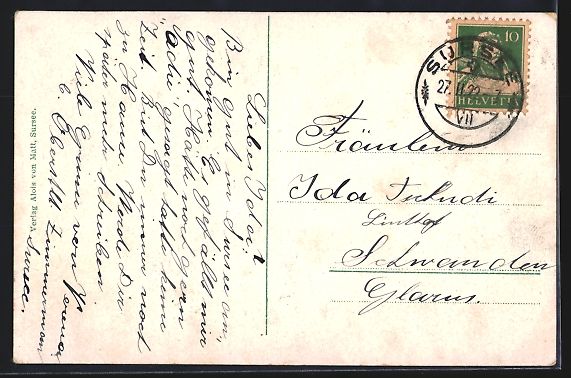 Liebes Ida!
Bin gut in Sursee an,
gekomen. Es gefällt mir
gut. Hätte noch gern
"adie" gesagt hatte keine
Zeit. Bist Du immer noch
zu Hause. Werde Dir
später mehr schreiben
Viele Grüsse von
b. Oberstlt Zimmermann
Sursee.
Verlag Alois von Matt, Sursee.
SURSEE
27. II 22
VII
10
HELVETIA
Fräulein
Ida Tschudi
Linthof
Schwanden
Glarus.